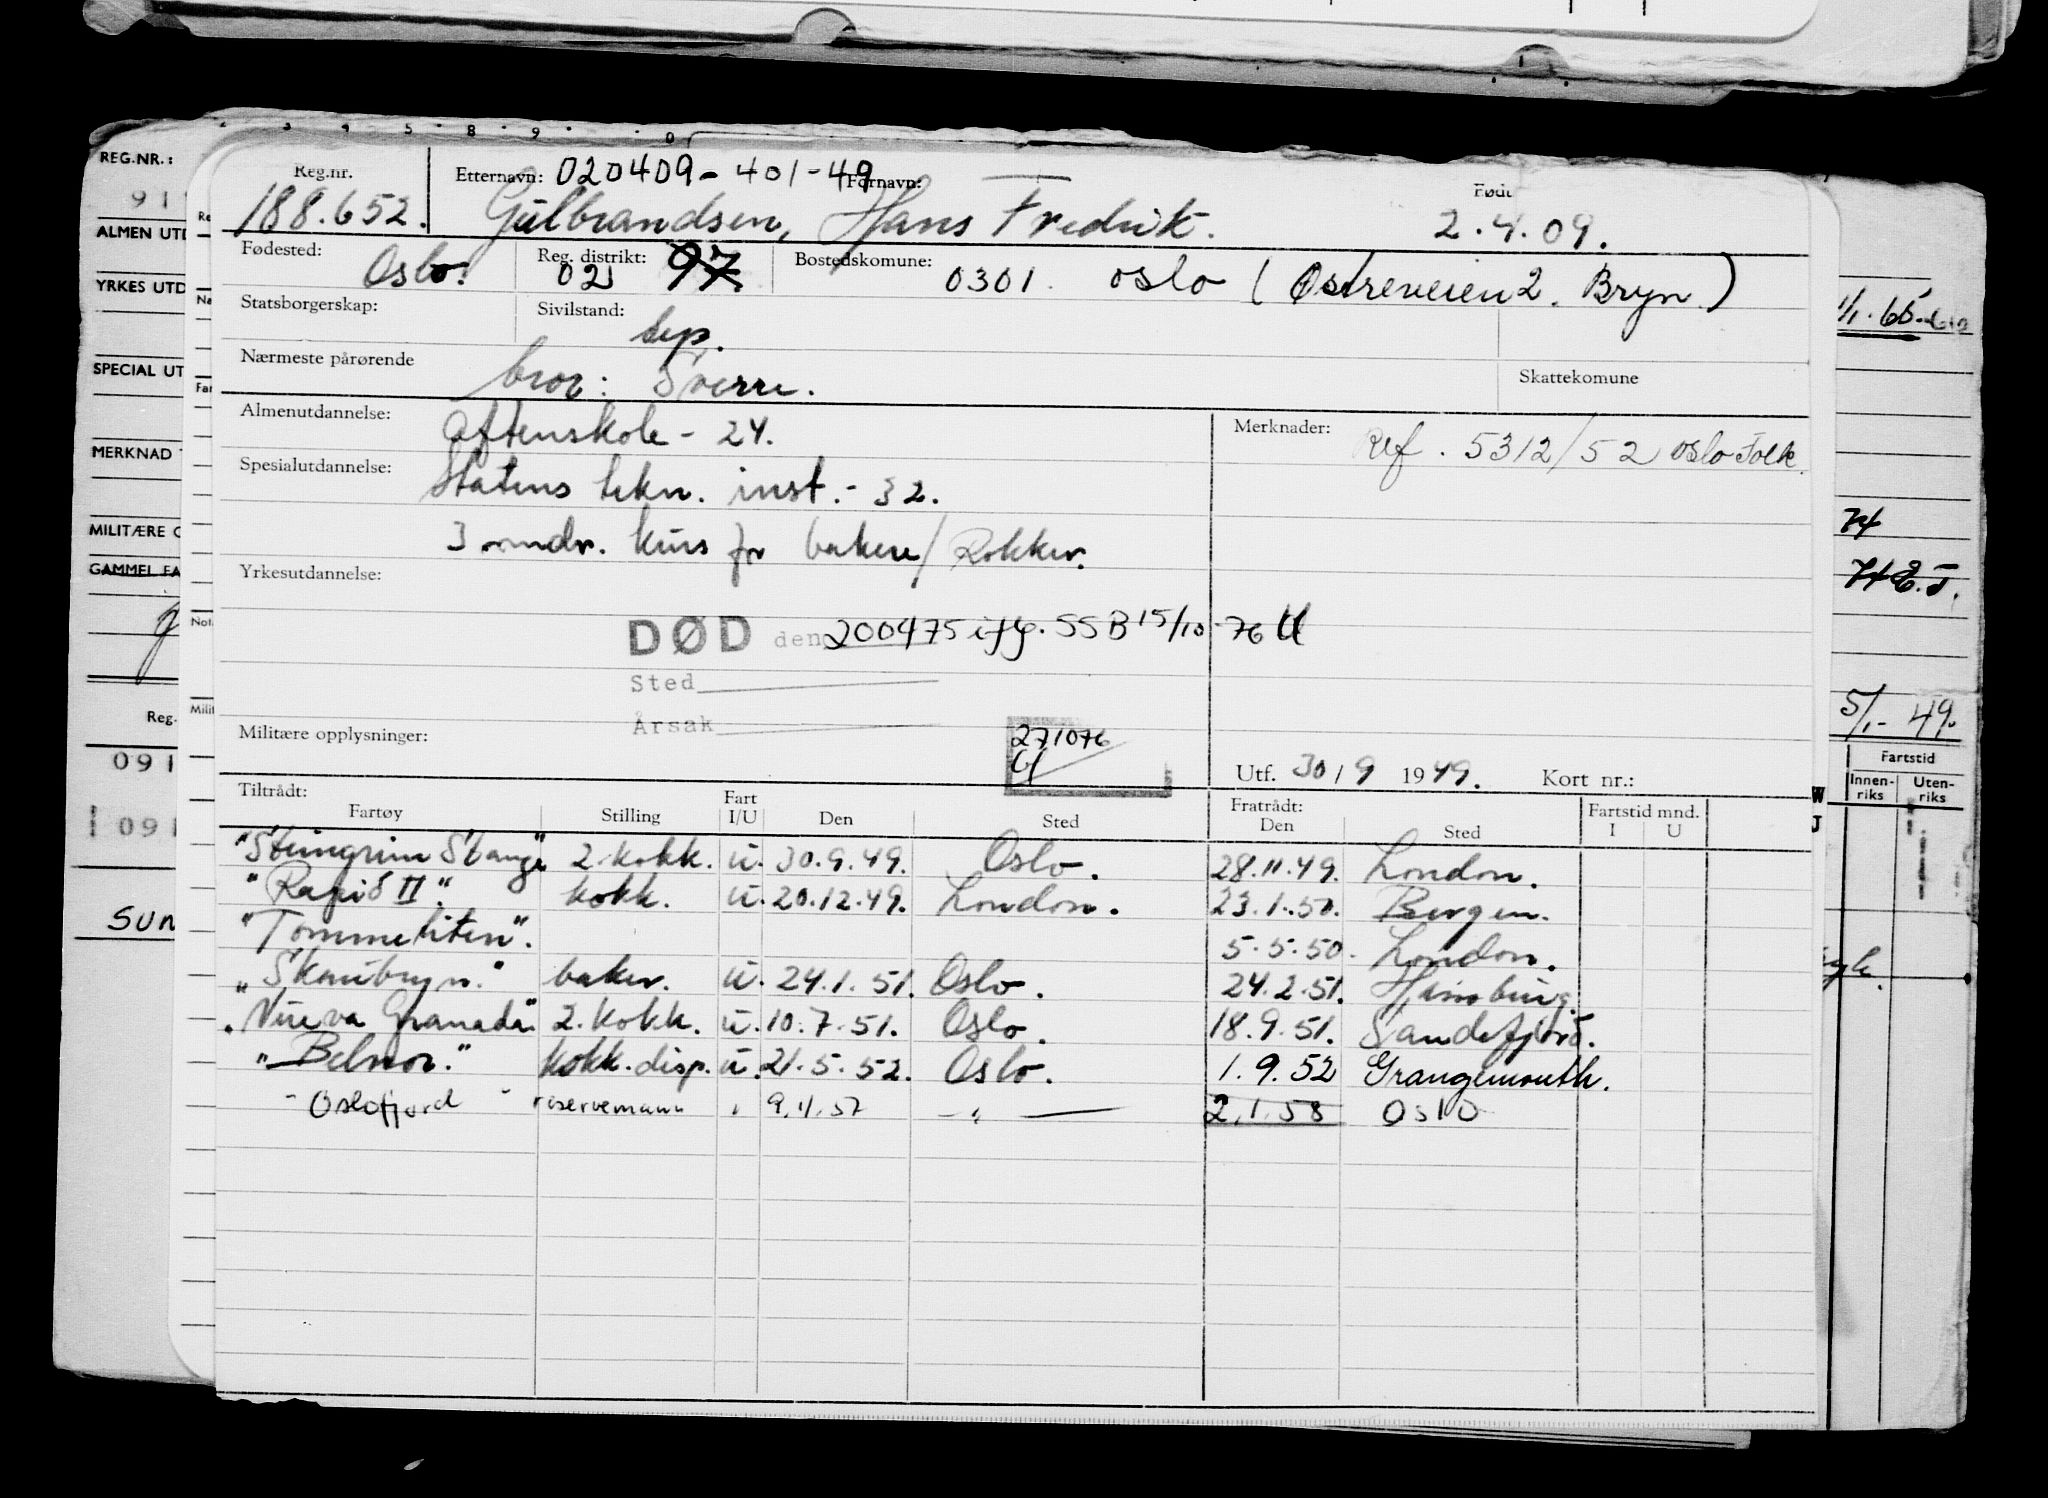 3 4 5 8 9 0
REG.NR.:
91
ALMEN UTD
YRKES UTD
SPECIAL UT
MERKNAD
MILITÆRE
GAMMEL FA
Reg.
091
091
SUN
Reg.nr. Etternavn: 020409-401-49 Fornavn: Født
188.652. Gulbrandsen, Hans Fredrik. 2.4.09.
Fødested: Oslo. Reg. distrikt: 02 97 Bostedskomune: 0301. Oslo (Østreveien 2. Bryn)
Statsborgerskap: Sivilstand: sep.
Nærmeste pårørende bror: Sverre. Skattekomune
Almenutdannelse: Aftenskole - 24. Merknader: Ref. 5312/52 Oslo Folk.
Spesialutdannelse: Statens tekn. inst. - 32.
3 mndr. kurs for bakere/Kokker.
Yrkesutdannelse:
DØD den 200475 iflg. SSB 15/10-76
Sted
Årsak
Militære opplysninger: 271076
Utf. 30/9 1949. Kort nr.:
Tiltrådt: Fratrådt: Fartstid mnd.
Fartøy Stilling Fart I/U Den Sted Den Sted I U
"Steingrim Stange" 2. kokk. u. 30.9.49. Oslo. 28.11.49. London.
"Rapid II". kokk. u. 20.12.49. London. 23.1.50. Bergen.
"Tommeliten". 5.5.50. London.
"Skaubryn." baker. u. 24.1.51. Oslo. 24.2.51. Hamburg.
"Nueva Granada" 2. kokk. u. 10.7.51. Oslo. 18.9.51. Sandefjord.
"Belnor." kokk. disp. u. 21.5.52. Oslo. 1.9.52 Grangemouth.
- Oslofjord - reservemann " 9.11.57 - " - 2.1.58 Oslo
1/1.65
74
5/1-49.
Fartstid
Innen-riks Uten-riks
W
J